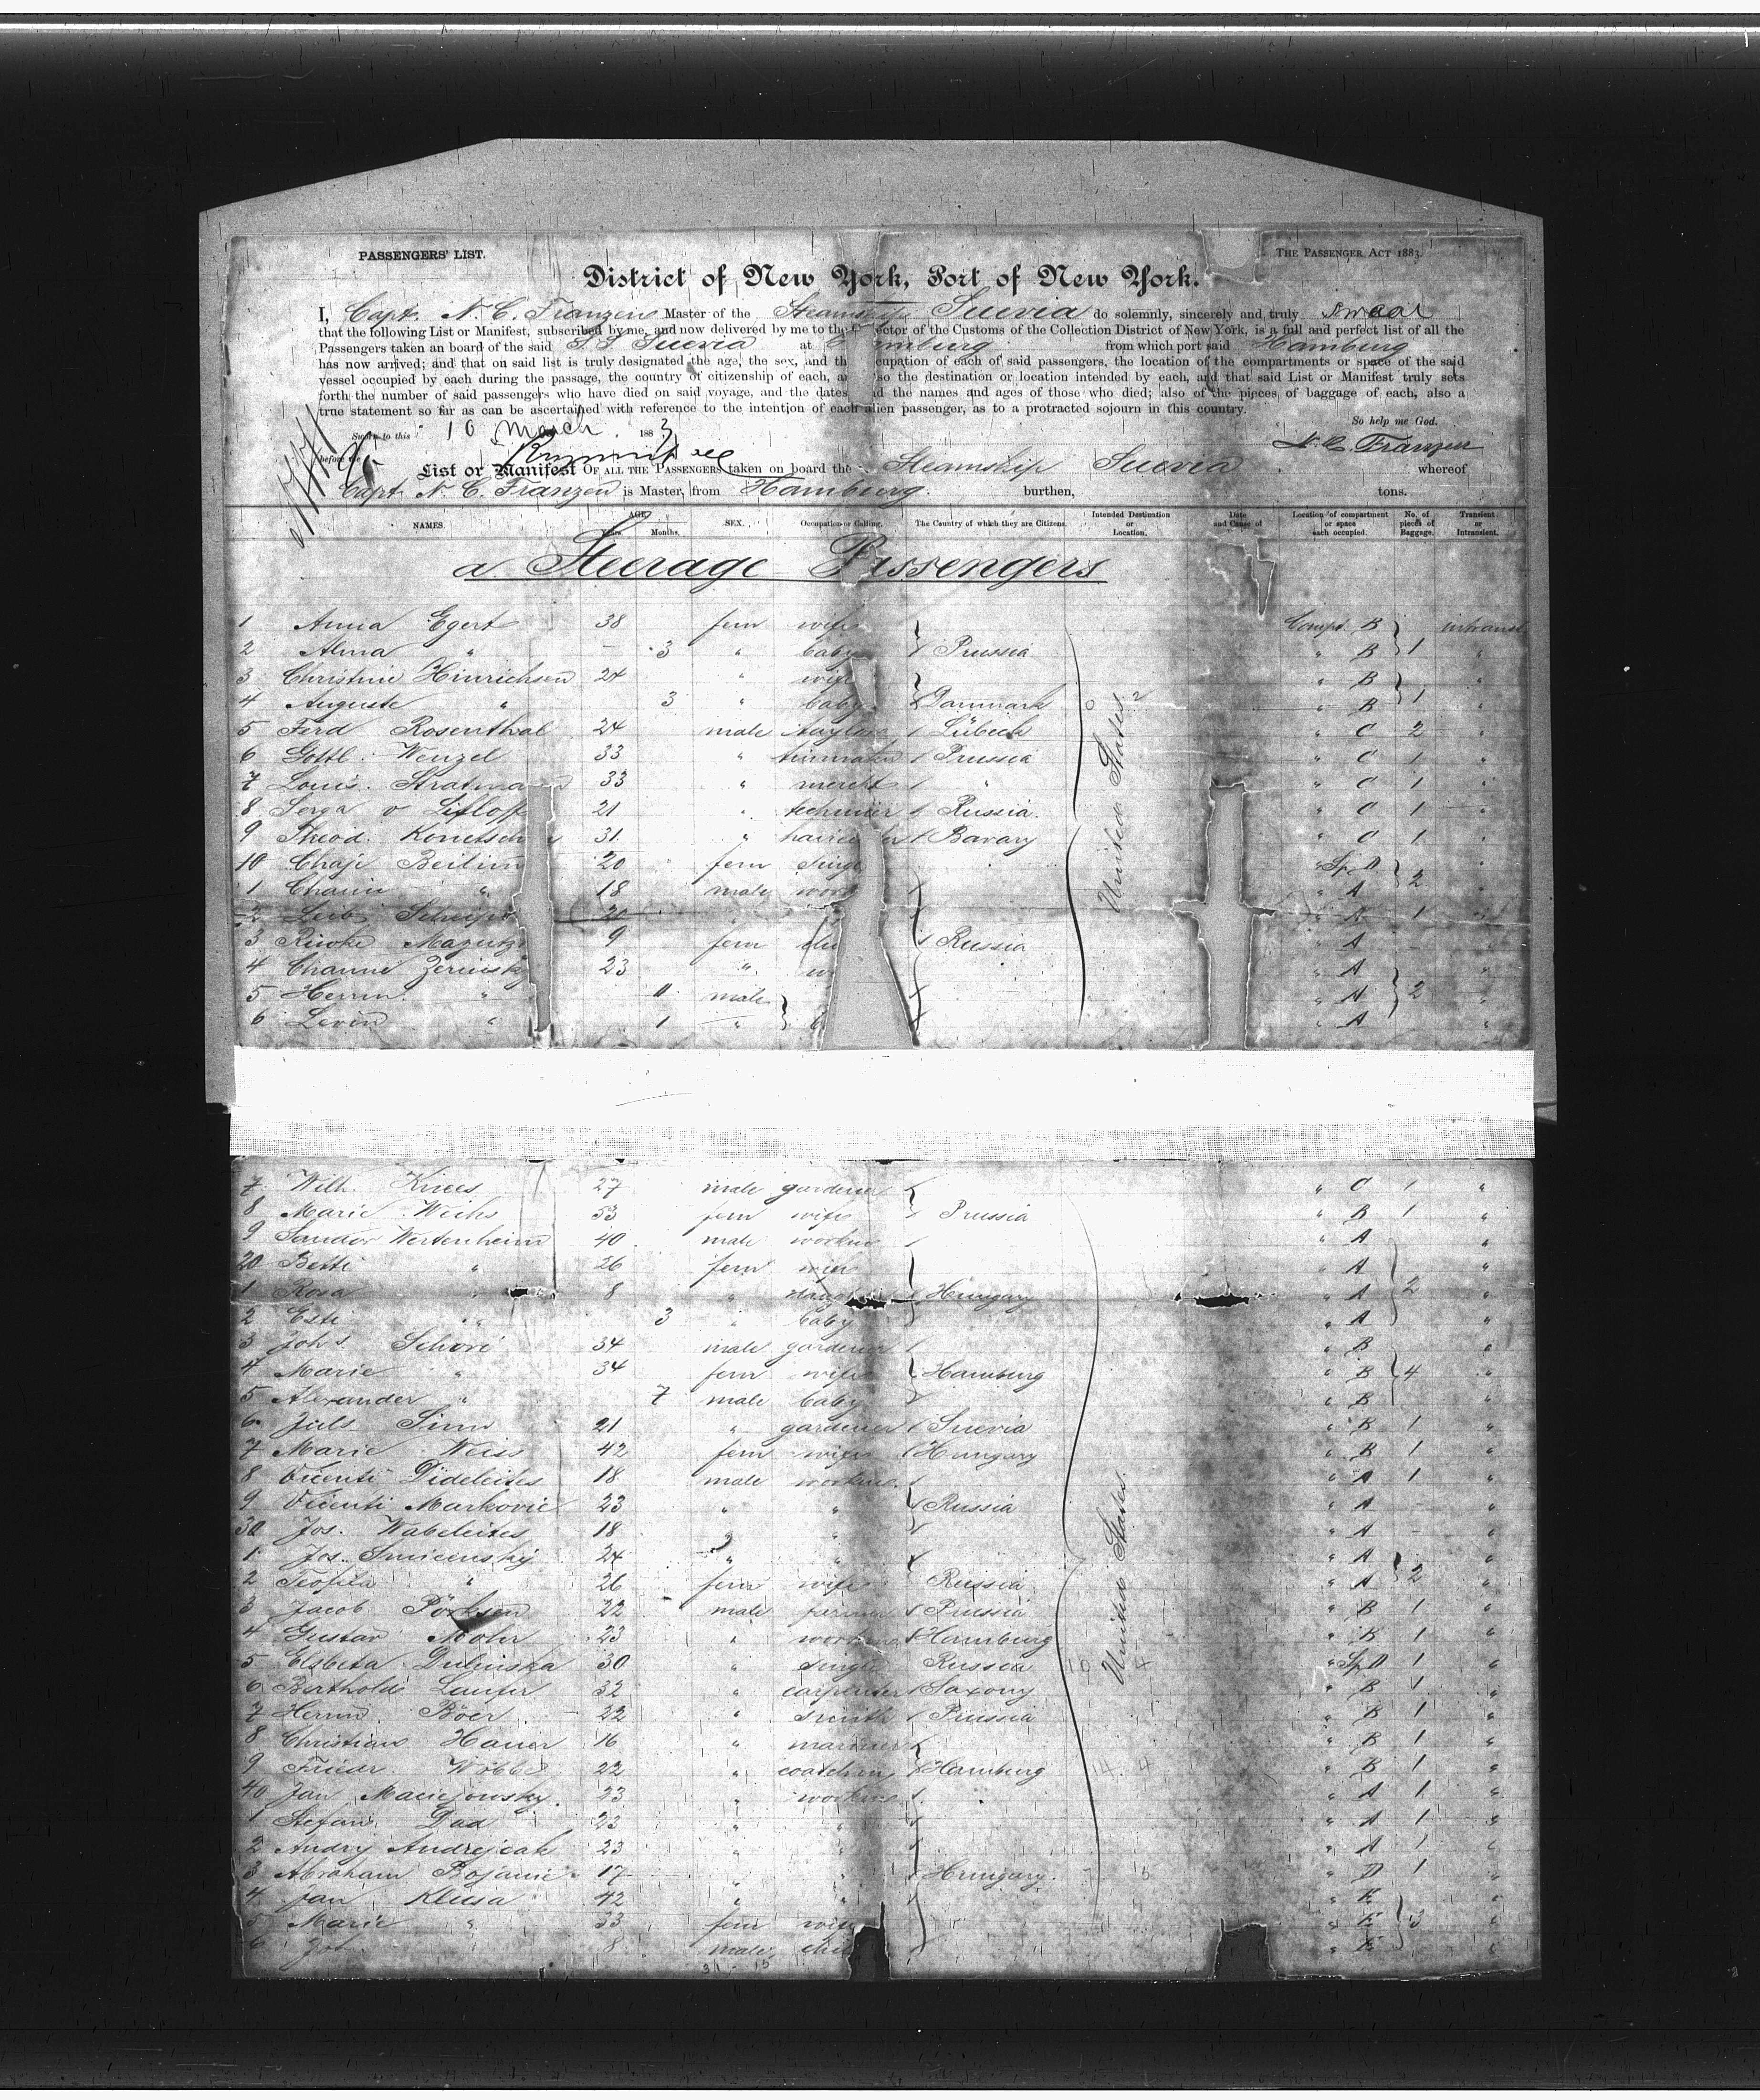 PASSENGERS' LIST.
THE PASSENGER ACT 1883.
District of New York, Port of New York.
I, Capt. N. C. Franzen Master of the Steamship Suevia do solemnly, sincerely and truly swear
that the following List or Manifest, subscribed by me, and now delivered by me to the ector of the Customs of the Collection District of New York, is a full and perfect list of all the
Passengers taken an board of the said S. S. Suevia at mburg from which port said Hamburg
has now arrived; and that on said list is truly designated the age, the sex, and th cupation of each of said passengers, the location of the compartments or space of the said
vessel occupied by each during the passage, the country of citizenship of each, a so the destination or location intended by each, and that said List or Manifest truly sets
forth the number of said passengers who have died on said voyage, and the dates d the names and ages of those who died; also of the pieces of baggage of each, also a
true statement so far as can be ascertained with reference to the intention of each alien passenger, as to a protracted sojourn in this country.
So help me God.
Sworn to this 10 March 1883
before me
N. C. Franzen
List or Manifest OF ALL THE PASSENGERS taken on board the Steamship Suevia whereof
Capt. N. C. Franzen is Master, from Hamburg. burthen, tons.
NAMES. AGE. Years. Months. SEX. Occupation or Calling. The Country of which they are Citizens. Intended Destination or Location. Date and Cause of Location of compartment or space each occupied. No. of pieces of Baggage. Transient or Intransient.
a. Steerage Passengers
1 Anna Egert 38 fem wife Compt. B intransi
2 Alma " 3 " baby Prussia " B 1 "
3 Christine Hinrichsen 24 " wife " B "
4 Auguste " 3 " baby Danmark " B 1 "
5 Ferd Rosenthal 24 male taylor Lübeck " C 2 "
6 Gottl. Wenzel 33 " Prussia " C 1 "
7 Louis. Stratma 33 " mercht " " C 1 "
8 Serga v 21 " Russia. " C 1 "
9 Theod. 31 " Bavary " C 1 "
10 Chaje 20 fem singl " Sp. D "
1 Chaim " 18 male work " A 2 "
2 Leib 20 " A 1 "
3 Riwke 9 fem Russia " A "
4 23 " " A "
5 Herrm. " 11 male " A 2 "
6 Levin " 1 " " A "
7 Wilh. Knees 27 male gardener " C 1 "
8 Marie Weihs 53 fem wife Prussia " B 1 "
9 Sandor Wertenheim 40 male workm " A "
20 Betti " 26 fem wife " A "
1 Rosa " 8 " Hungary " A 2 "
2 Esti " 3 " baby " A "
3 Johs. Schori 34 male gardener " B
4 Marie " 34 fem wife Hamburg " B 4 "
5 Alexander " 7 male baby " B
6 Juls. Sinn 21 " gardener Suevia " B 1 "
7 Marie Weiss 42 fem wife Hungary " B 1 "
8 Vicenti Dideleites 18 male workm. " A 1 "
9 Vicenti Markovic 23 " " Russia " A - "
30 Jos. Wabeleites 18 " " " A - "
1 Jos. Smicensky 24 " " " A "
2 Teofila " 26 fem wife Russia " A 2 "
3 Jacob Pörksen 22 male farmer Prussia " B 1 "
4 Gustav Mohr 23 " workm Hamburg " B 1 "
5 Elsbeta Dulinska 30 " single Russia " Sp. D 1 "
6 Berthold Laufer 32 " carpenter Saxony " B 1 "
7 Herrm. Böer 22 " smith Prussia " B 1 "
8 Christian Hauer 16 " mariner " B 1 "
9 Frieder. Wöbbe 22 " coachm Hamburg " B 1 "
40 Jan Maciejowsky 23 " workm " A 1 "
1 Stefan Dud 23 " " " A 1 "
2 Andry Andrejcak 23 " A 1 "
3 Abraham Bojanic 17 " " Hungary. " D 1 "
4 Jan Klusa 42 " " " E "
5 Marie " 33 fem wife " E 3 "
6 8 male chil " E "
United States
United States.